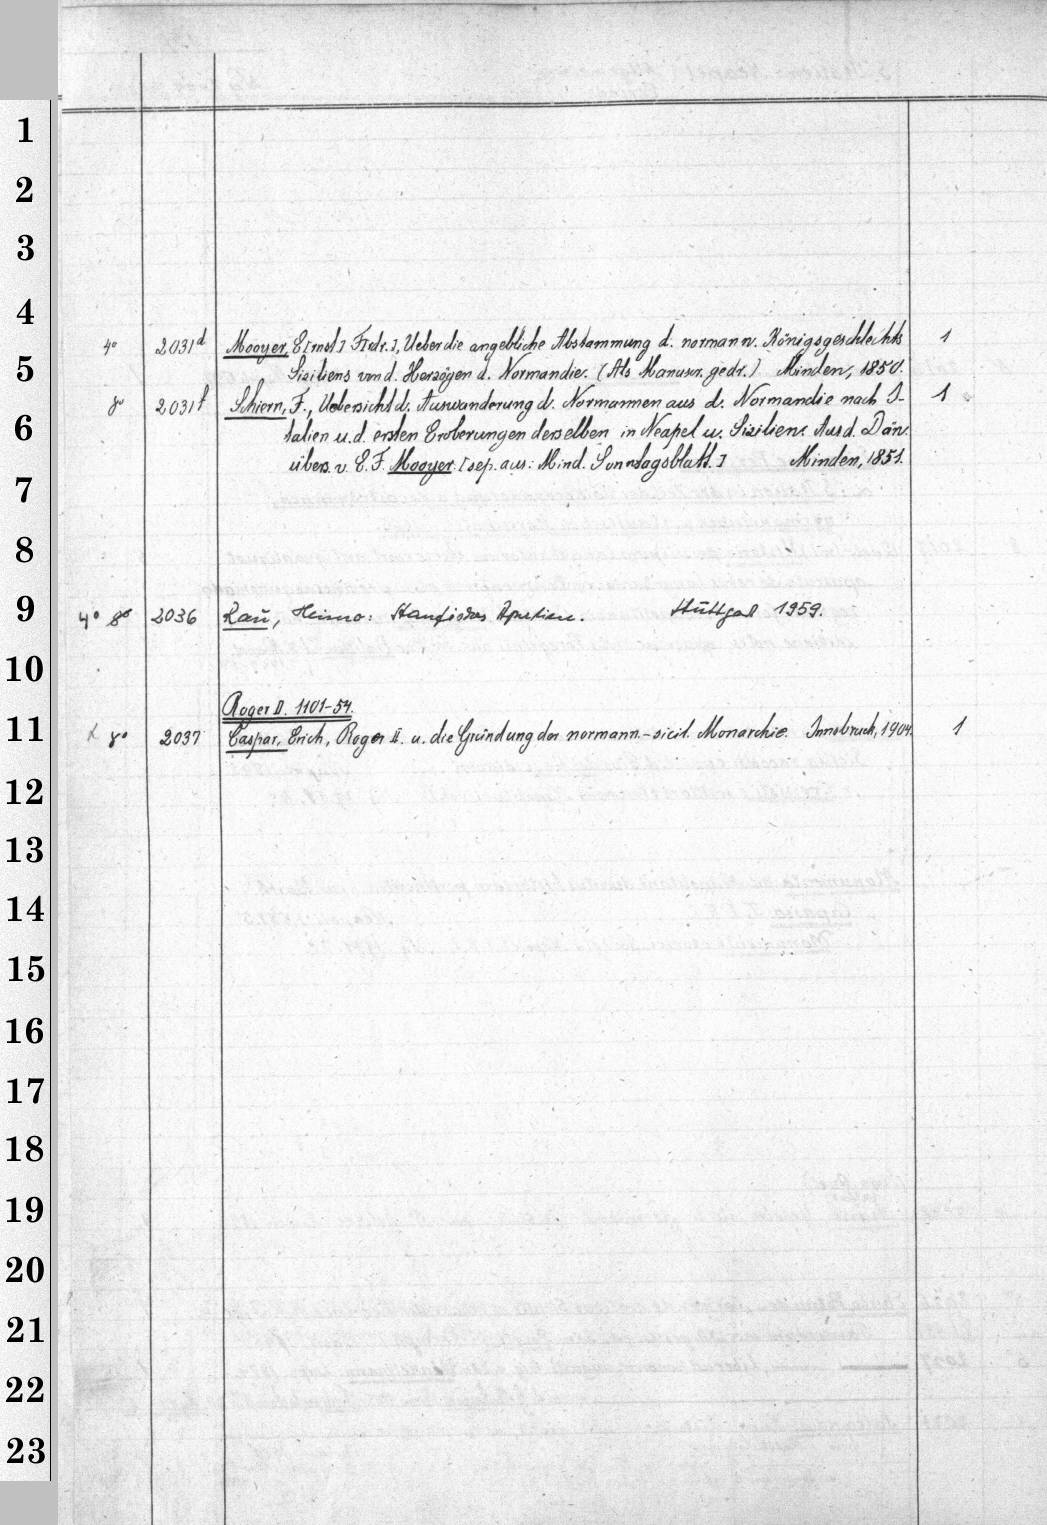 1
2
3
4
4° 2031d Mooyer, E[rnst] F[rdr.], Ueber die angebliche Abstammung d. normann. Königsgeschlechts 1
5 Siziliens von d. Herzögen d. Normandie. (Als Manuscr. gedr.) Minden, 1850.
8° 2031f Schiern, F., Uebersicht d. Auswanderung d. Normannen aus d. Normandie nach I- 1
6 talien u. d. ersten Eroberungen derselben in Neapel u. Sizilien. Aus d. Dän.
übers. v. E. F. Mooyer. [sep. aus: Mind. Sonntagsblatt.] Minden, 1851.
7
8
9 4° 8° 2036 Rau, Heimo: Staufisches Apulien. Stuttgart 1959.
10
Roger II. 1101-54.
11 8° 2037 Caspar, Erich, Roger II. u. die Gründung der normann.-sicil. Monarchie. Innsbruck, 1904. 1
12
13
14
15
16
17
18
19
20
21
22
23